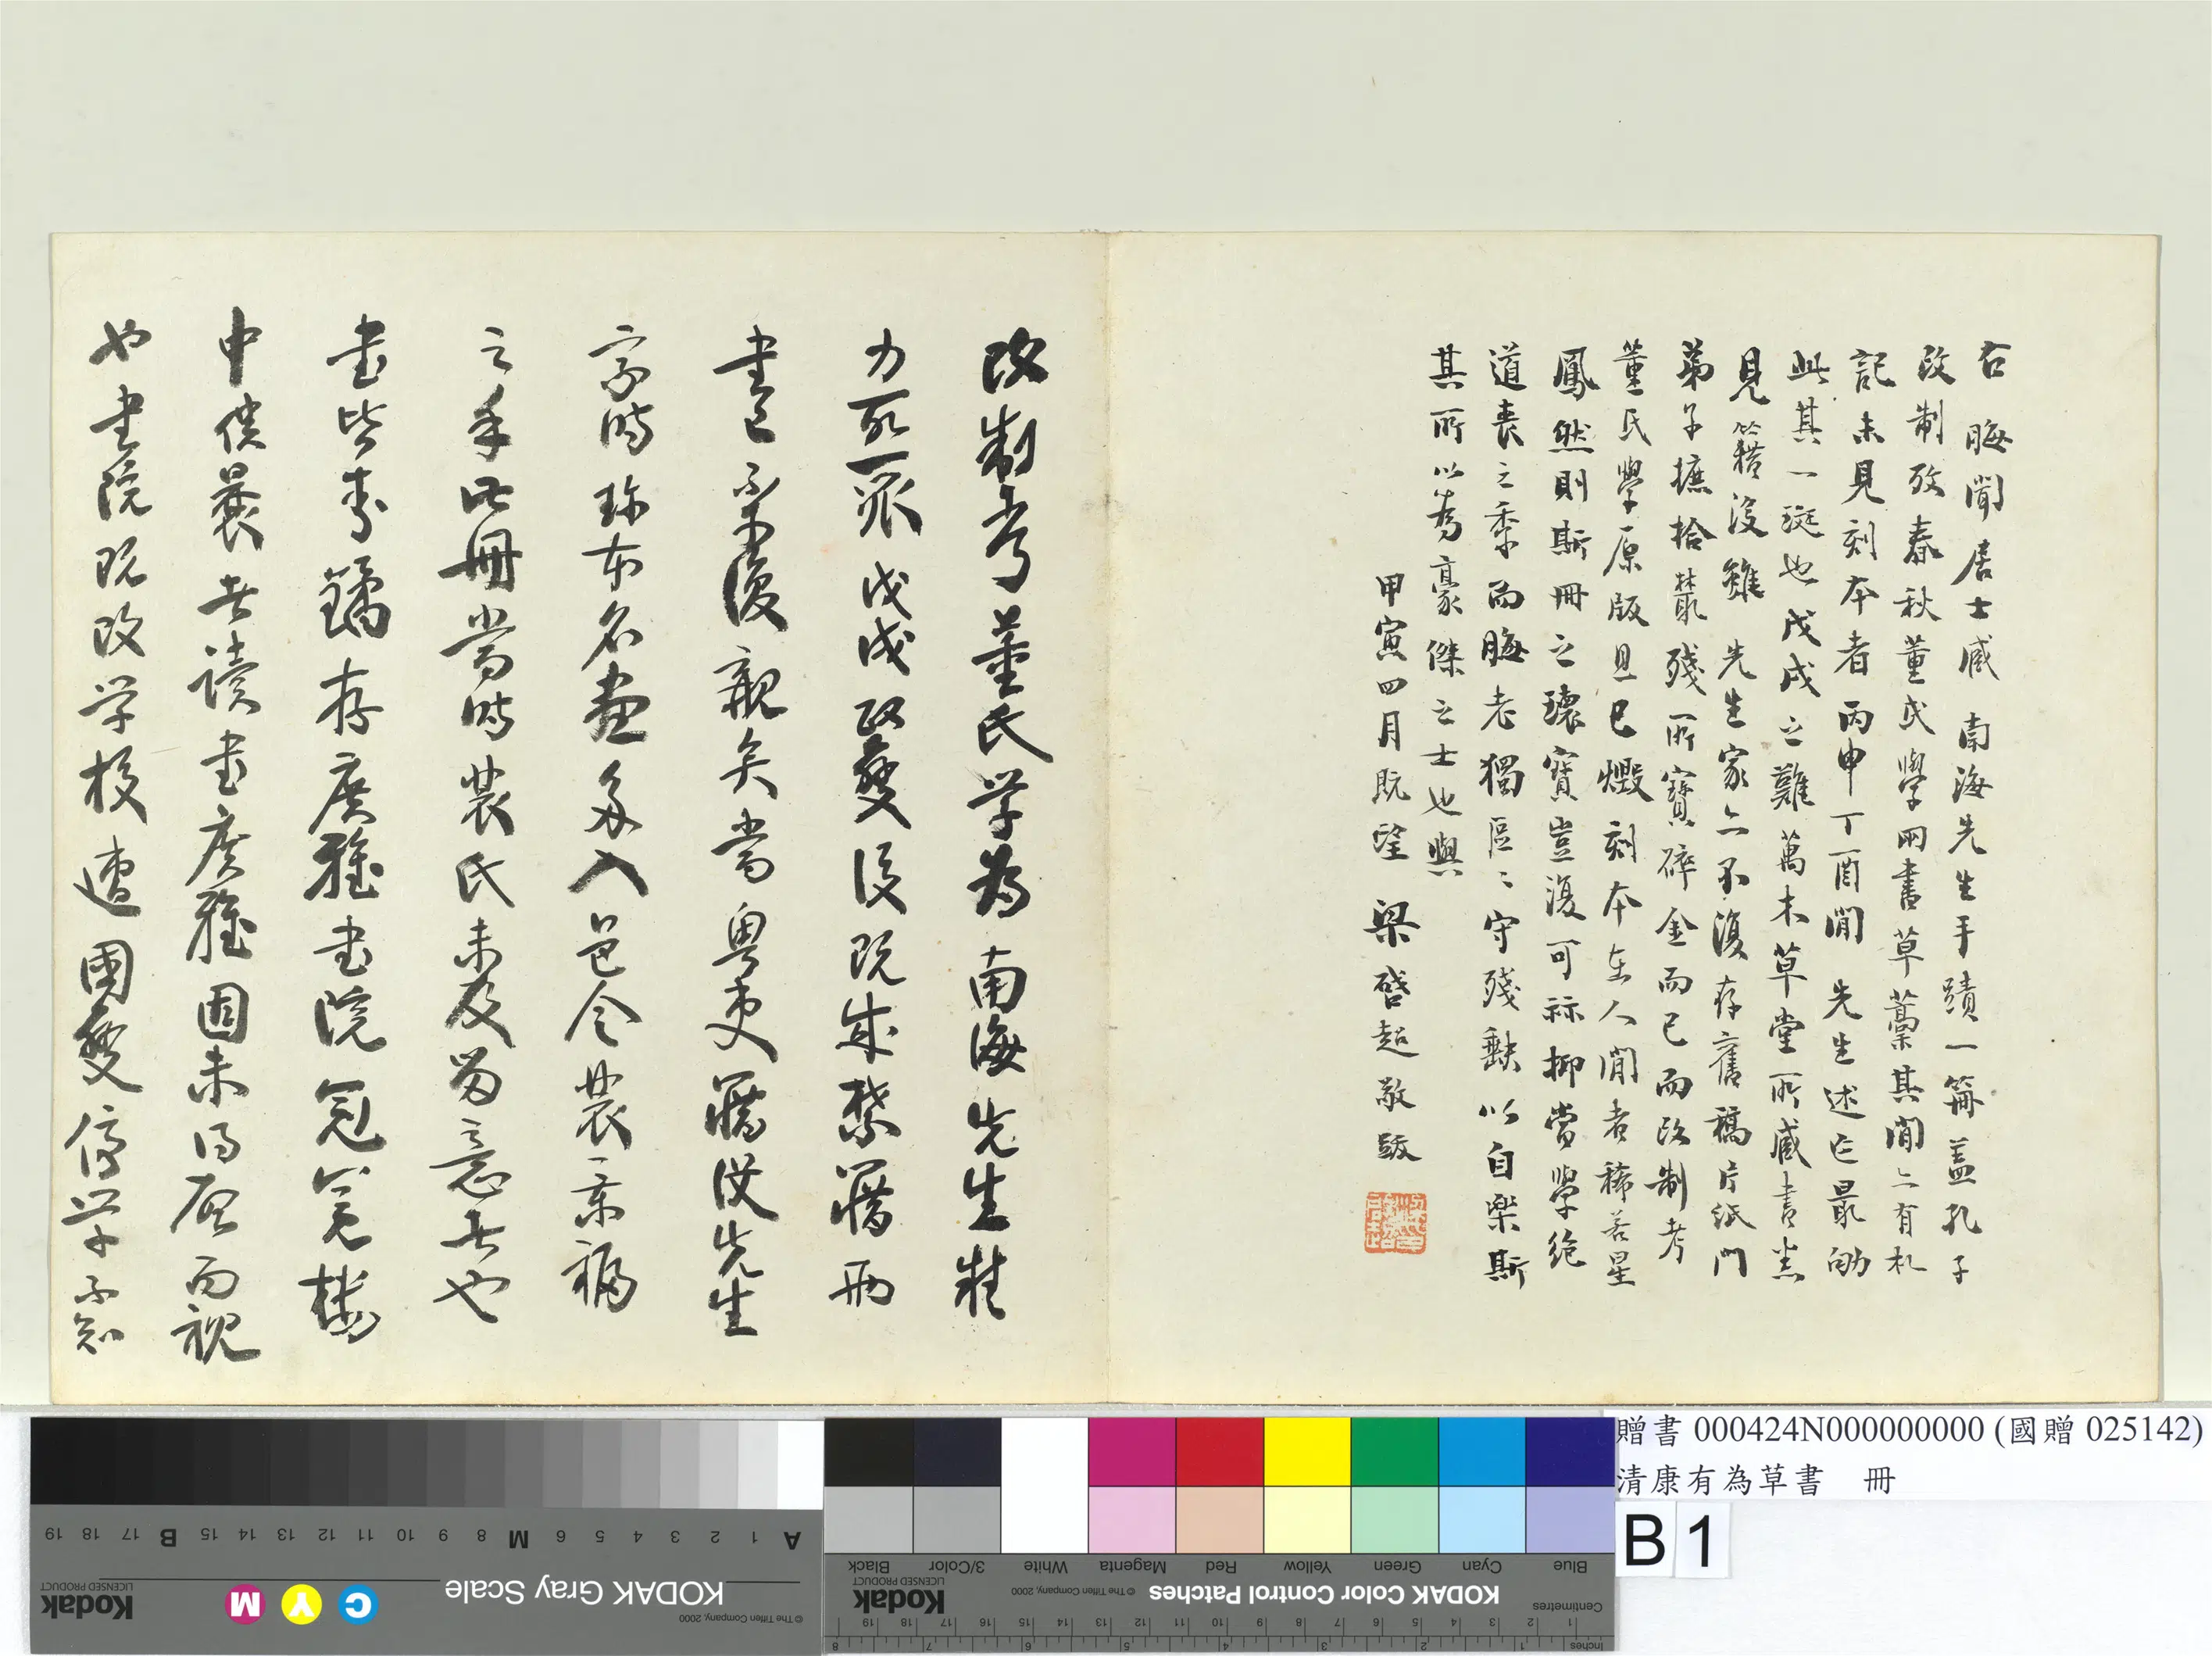 右 晦聞居士臧 南海先生手蹟一冊蓋孔子
改制攷春秋董氏學兩書草藁其間亦有札
記未見刻本者丙申丁酉間 先生述作最劬
此其一斑也戊戌之難萬木草堂所臧書悉
見籍沒雖 先生家亦不復存舊稿片紙門
弟子摭拾叢殘所寶碎金而已而改制考
董氏學原版且已燬刻本在人間者稀若星
鳳然則斯冊之瓌寶豈復可祘抑當學絕
道喪之季而晦老獨區區守殘缺以自樂斯
其所以為豪傑之士也與
甲寅四月既望 梁啓超敬跋
改制考董氏学為南海先生精
力所聚戊戌政變後既成禁籍而
書已不復親矣當粤吏籍没先生
家時珍本名畫多入邑令裴景福
之手此冊當時裴氏未及留意者也
書皆李鐍存廣雅書院冠冕樓
中僕曩者讀書廣雅固未得啟而視
也書院既改学校遭國變停学不知
贈書 000424N000000000 (國贈 025142)
清康有為草書 冊
B 1
Blue Cyan Green Yellow Red Magenta White 3/Color Black
KODAK Color Control Patches
© The Tiffen Company, 2000
Kodak
LICENSED PRODUCT
Centimetres
Inches
A 1 2 3 4 5 6 M 8 9 10 11 12 13 14 15 B 17 18 19
KODAK Gray Scale
C Y M
Kodak
LICENSED PRODUCT
© The Tiffen Company, 2000